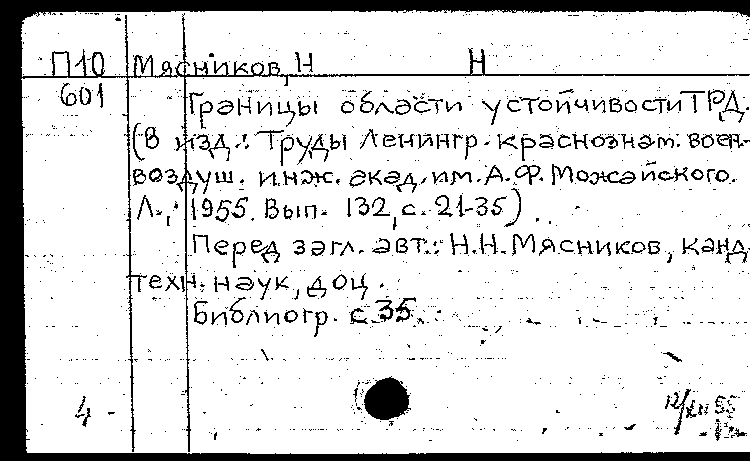 П10 Мясников, Н Н
601 Границы области устойчивости ТРД.
(В изд.: Труды Ленингр. краснознам. воен-
воздуш. инж. акад. им. А.Ф. Можайского.
Л., 1955. Вып. 132, с. 21-35)
Перед загл. авт.: Н.Н. Мясников, канд
техн. наук, доц.
Библиогр. с. 35.
4